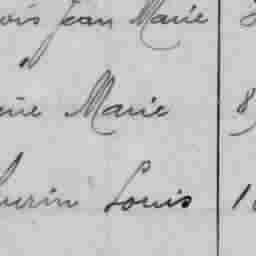 ois Jean Marie
rie Marie 8
hurin Louis 1